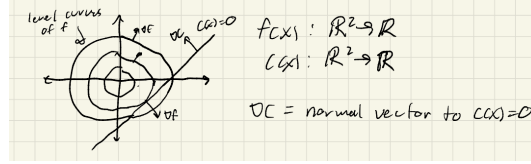 level curves
of f
∇f
∇C
C(x)=0
∇f
f(x) : ℝ²→ℝ
C(x) : ℝ²→ℝ
∇C = normal vector to C(x)=0